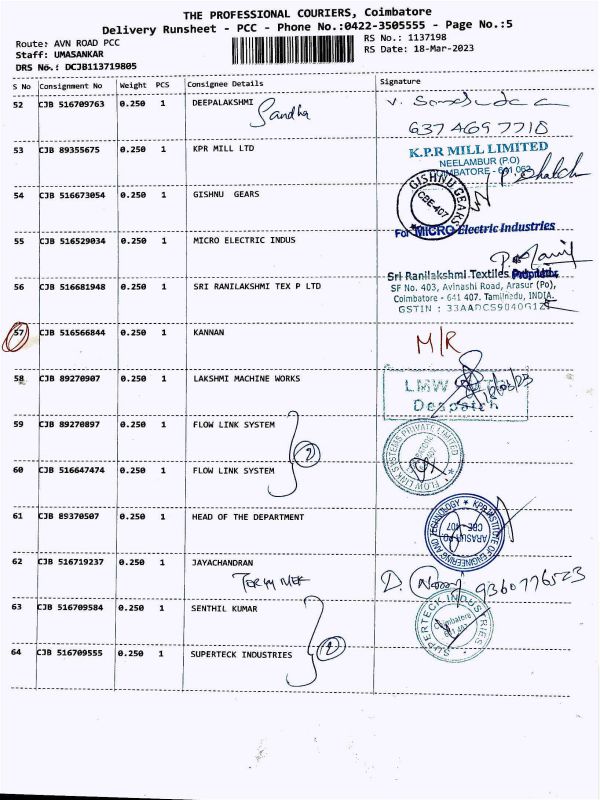 THE PROFESSIONAL COURIERS, Coimbatore
Delivery Runsheet - PCC - Phone No.:0422-3505555 - Page No.:5
Route: AVN ROAD PCC
RS No.: 1137198
Staff: UMASANKAR
RS Date: 18-Mar-2023
DRS No.: DCJB113719805
S No Consignment No Weight PCS Consignee Details Signature
52 CJB 516709763 0.250 1 DEEPALAKSHMI
Sandha
637 469 7718
53 CJB 89355675 0.250 1 KPR MILL LTD
K.P.R MILL LIMITED
NEELAMBUR (P.O)
COIMBATORE - 641 062
54 CJB 516673054 0.250 1 GISHNU GEARS
GISHNU GEARS
CBE-407
For MICRO Electric Industries
55 CJB 516529034 0.250 1 MICRO ELECTRIC INDUS
56 CJB 516681948 0.250 1 SRI RANILAKSHMI TEX P LTD
Sri Ranilakshmi Textiles
SF No. 403, Avinashi Road, Arasur (Po),
Coimbatore - 641 407. Tamilnadu, INDIA.
GSTIN : 33AADCS9040G1Z
57 CJB 516566844 0.250 1 KANNAN
M/R
58 CJB 89270907 0.250 1 LAKSHMI MACHINE WORKS
LMW
Despatch
59 CJB 89270897 0.250 1 FLOW LINK SYSTEM
2
FLOW LINK SYSTEMS PRIVATE LIMITED
60 CJB 516647474 0.250 1 FLOW LINK SYSTEM
61 CJB 89370507 0.250 1 HEAD OF THE DEPARTMENT
KPR INSTITUTE OF ENGINEERING AND TECHNOLOGY
ARASUR PO.
CBE 407
62 CJB 516719237 0.250 1 JAYACHANDRAN
9360776523
63 CJB 516709584 0.250 1 SENTHIL KUMAR
2
SUPERTECK INDUSTRIES
Coimbatore
641 407
64 CJB 516709555 0.250 1 SUPERTECK INDUSTRIES